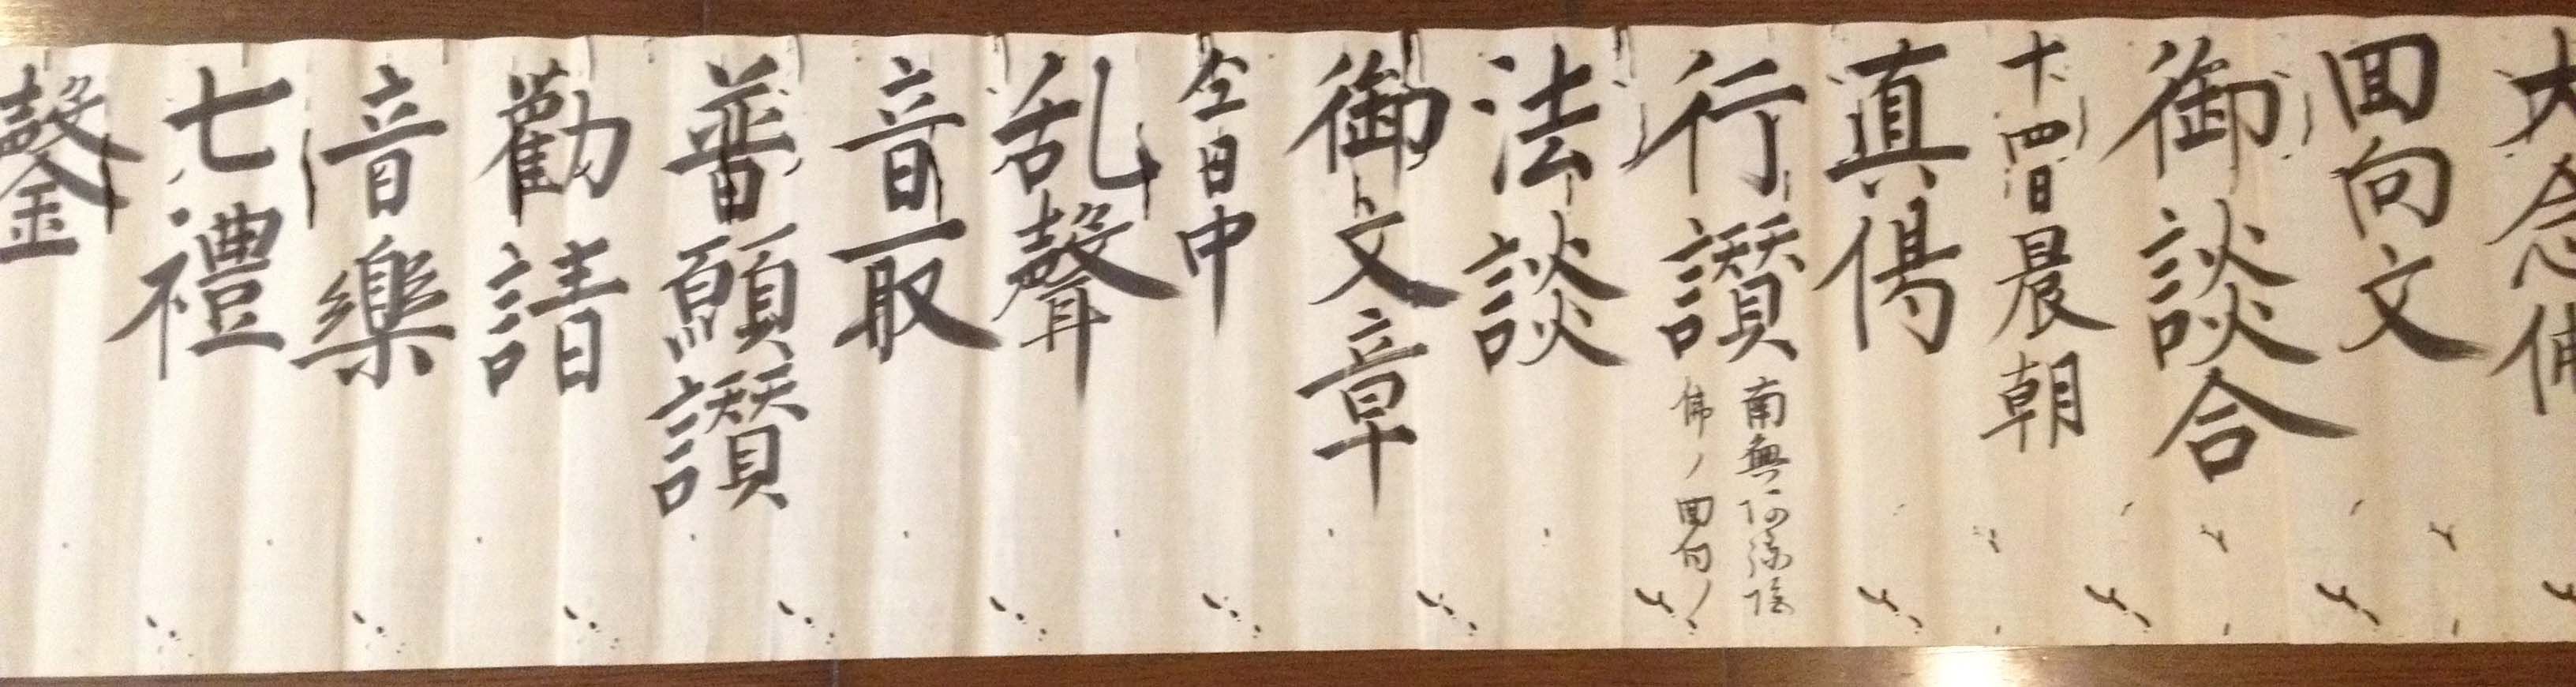 大念佛
回向文
御談合
十四日晨朝
真偈
行讃 南無阿弥陀
佛ノ回向ノ
法談
御文章
仝日中
乱聲
音取
普願讃
勸請
音樂
七禮
鏧